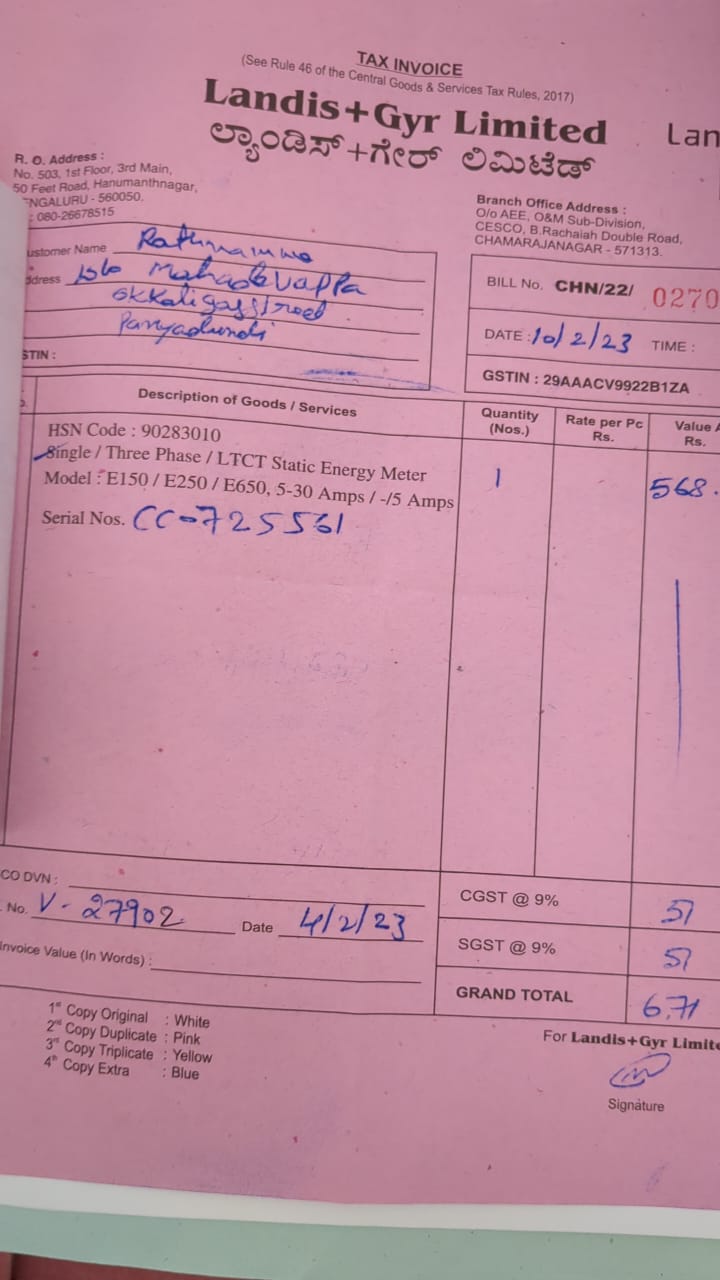 TAX INVOICE
(See Rule 46 of the Central Goods & Services Tax Rules, 2017)
Landis+Gyr Limited
Lan
ಲ್ಯಾಂಡಿಸ್+ಗೇರ್ ಲಿಮಿಟೆಡ್
R. O. Address :
No. 503, 1st Floor, 3rd Main,
50 Feet Road, Hanumanthnagar,
ENGALURU - 560050.
: 080-26678515
Branch Office Address :
O/o AEE, O&M Sub-Division,
CESCO, B.Rachaiah Double Road,
CHAMARAJANAGAR - 571313.
ustomer Name Rathnamma
ddress Mahadevappa
street
STIN :
BILL No. CHN/22/ 0270
DATE : 10/2/23 TIME :
GSTIN : 29AAACV9922B1ZA
Description of Goods / Services Quantity (Nos.) Rate per Pc Rs. Value Rs.
HSN Code : 90283010
Single / Three Phase / LTCT Static Energy Meter 1 568.
Model : E150 / E250 / E650, 5-30 Amps / -/5 Amps
Serial Nos. CC-725561
CO DVN :
No. V-27902 Date 4/2/23
Invoice Value (In Words) :
CGST @ 9% 51
SGST @ 9% 51
GRAND TOTAL 671
1st Copy Original : White
2nd Copy Duplicate : Pink
3rd Copy Triplicate : Yellow
4th Copy Extra : Blue
For Landis+Gyr Limite
Signature